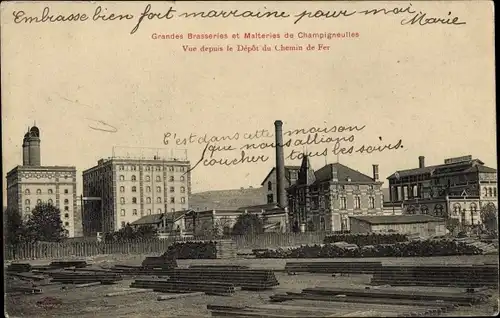 Embrasse bien fort marraine pour moi Marie
Grandes Brasseries et Malteries de Champigneulles
Vue depuis le Dépôt du Chemin de Fer
C'est dans cette maison
que nous allions
coucher tous les soirs.